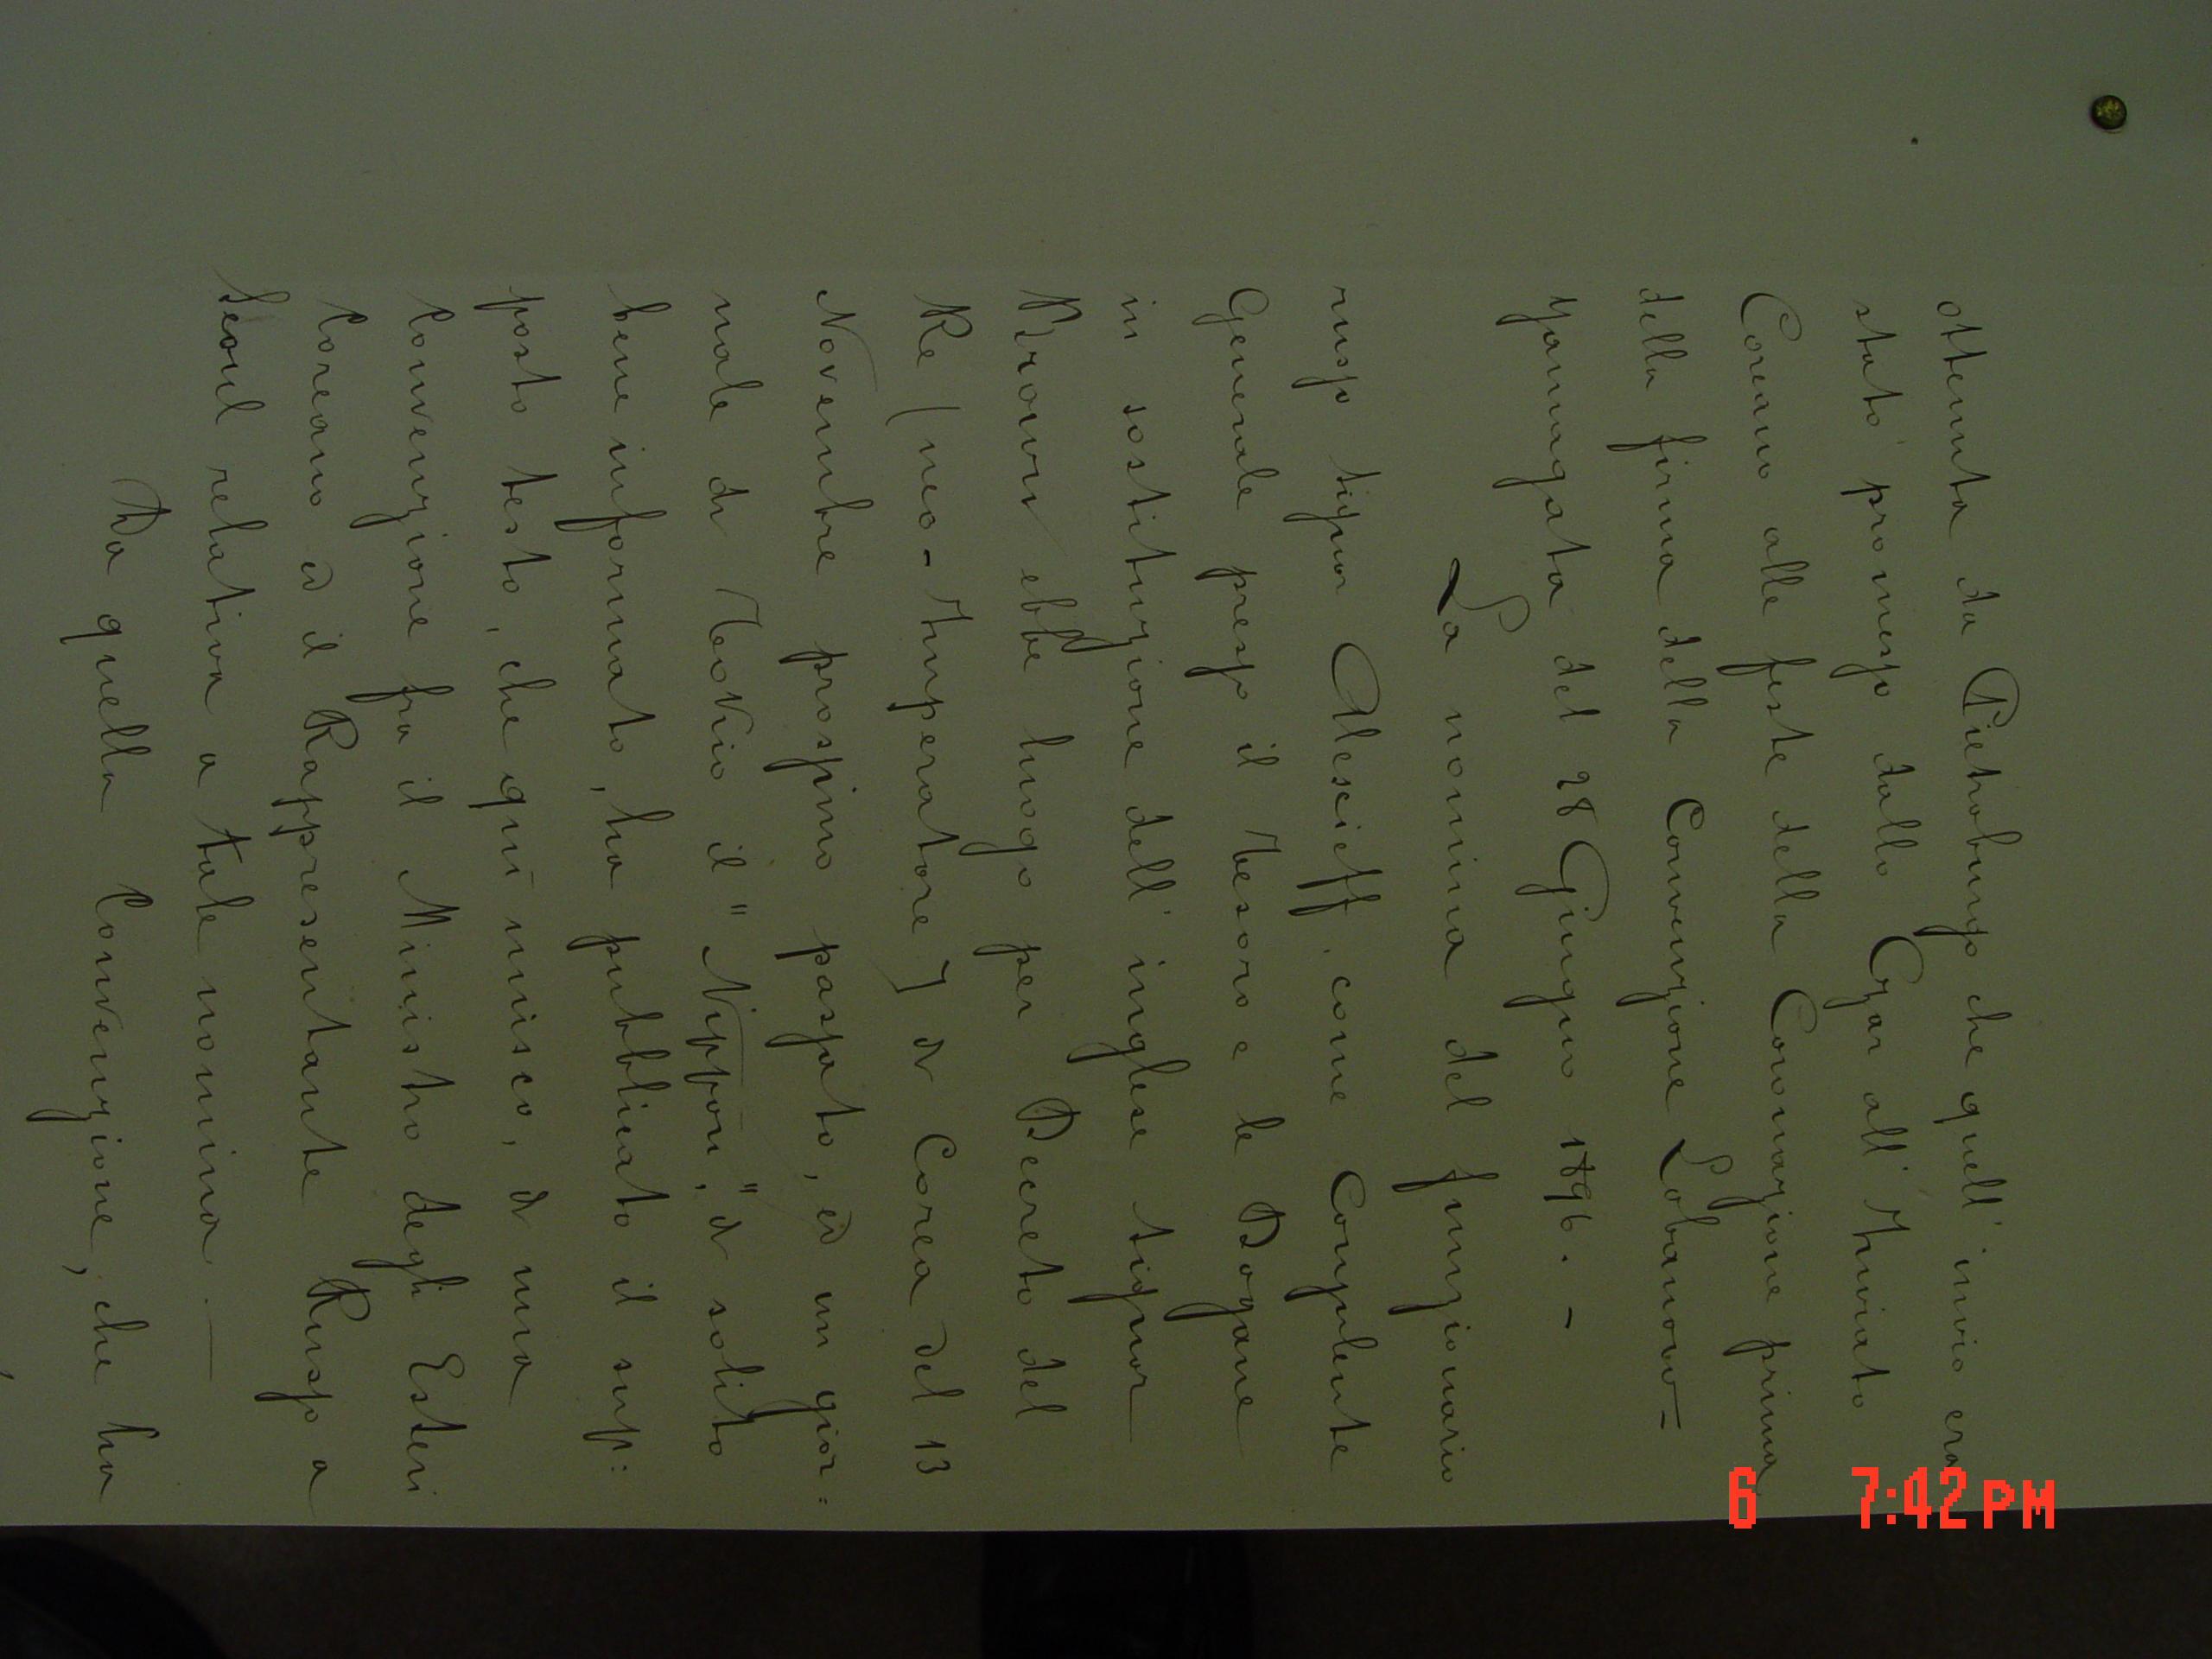 ottenuta da Pietroburgo che quell' invio era
stato promesso dallo Czar all' Inviato
Coreano alle feste della Coronazione prima
della firma della Convenzione Lobanow=
Yamagata del 28 Giugno 1896. -
La nomina del funzionario
russo signor Alescieff, come Consulente
Generale presso il Tesoro e le Dogane
in sostituzione dell' inglese signor
Brown ebbe luogo per Decreto del
Re (neo-Imperatore) di Corea del 13
Novembre prossimo passato, ed un gior=
nale di Tookio il "Nippon", di solito
bene informato, ha pubblicato il sup=
posto testo, che qui unisco, di una
Convenzione fra il Ministro degli Esteri
Coreano ed il Rappresentante Russo a
Seoul relativa a tale nomina. —
Da quella Convenzione, che ha
6 7:42 PM